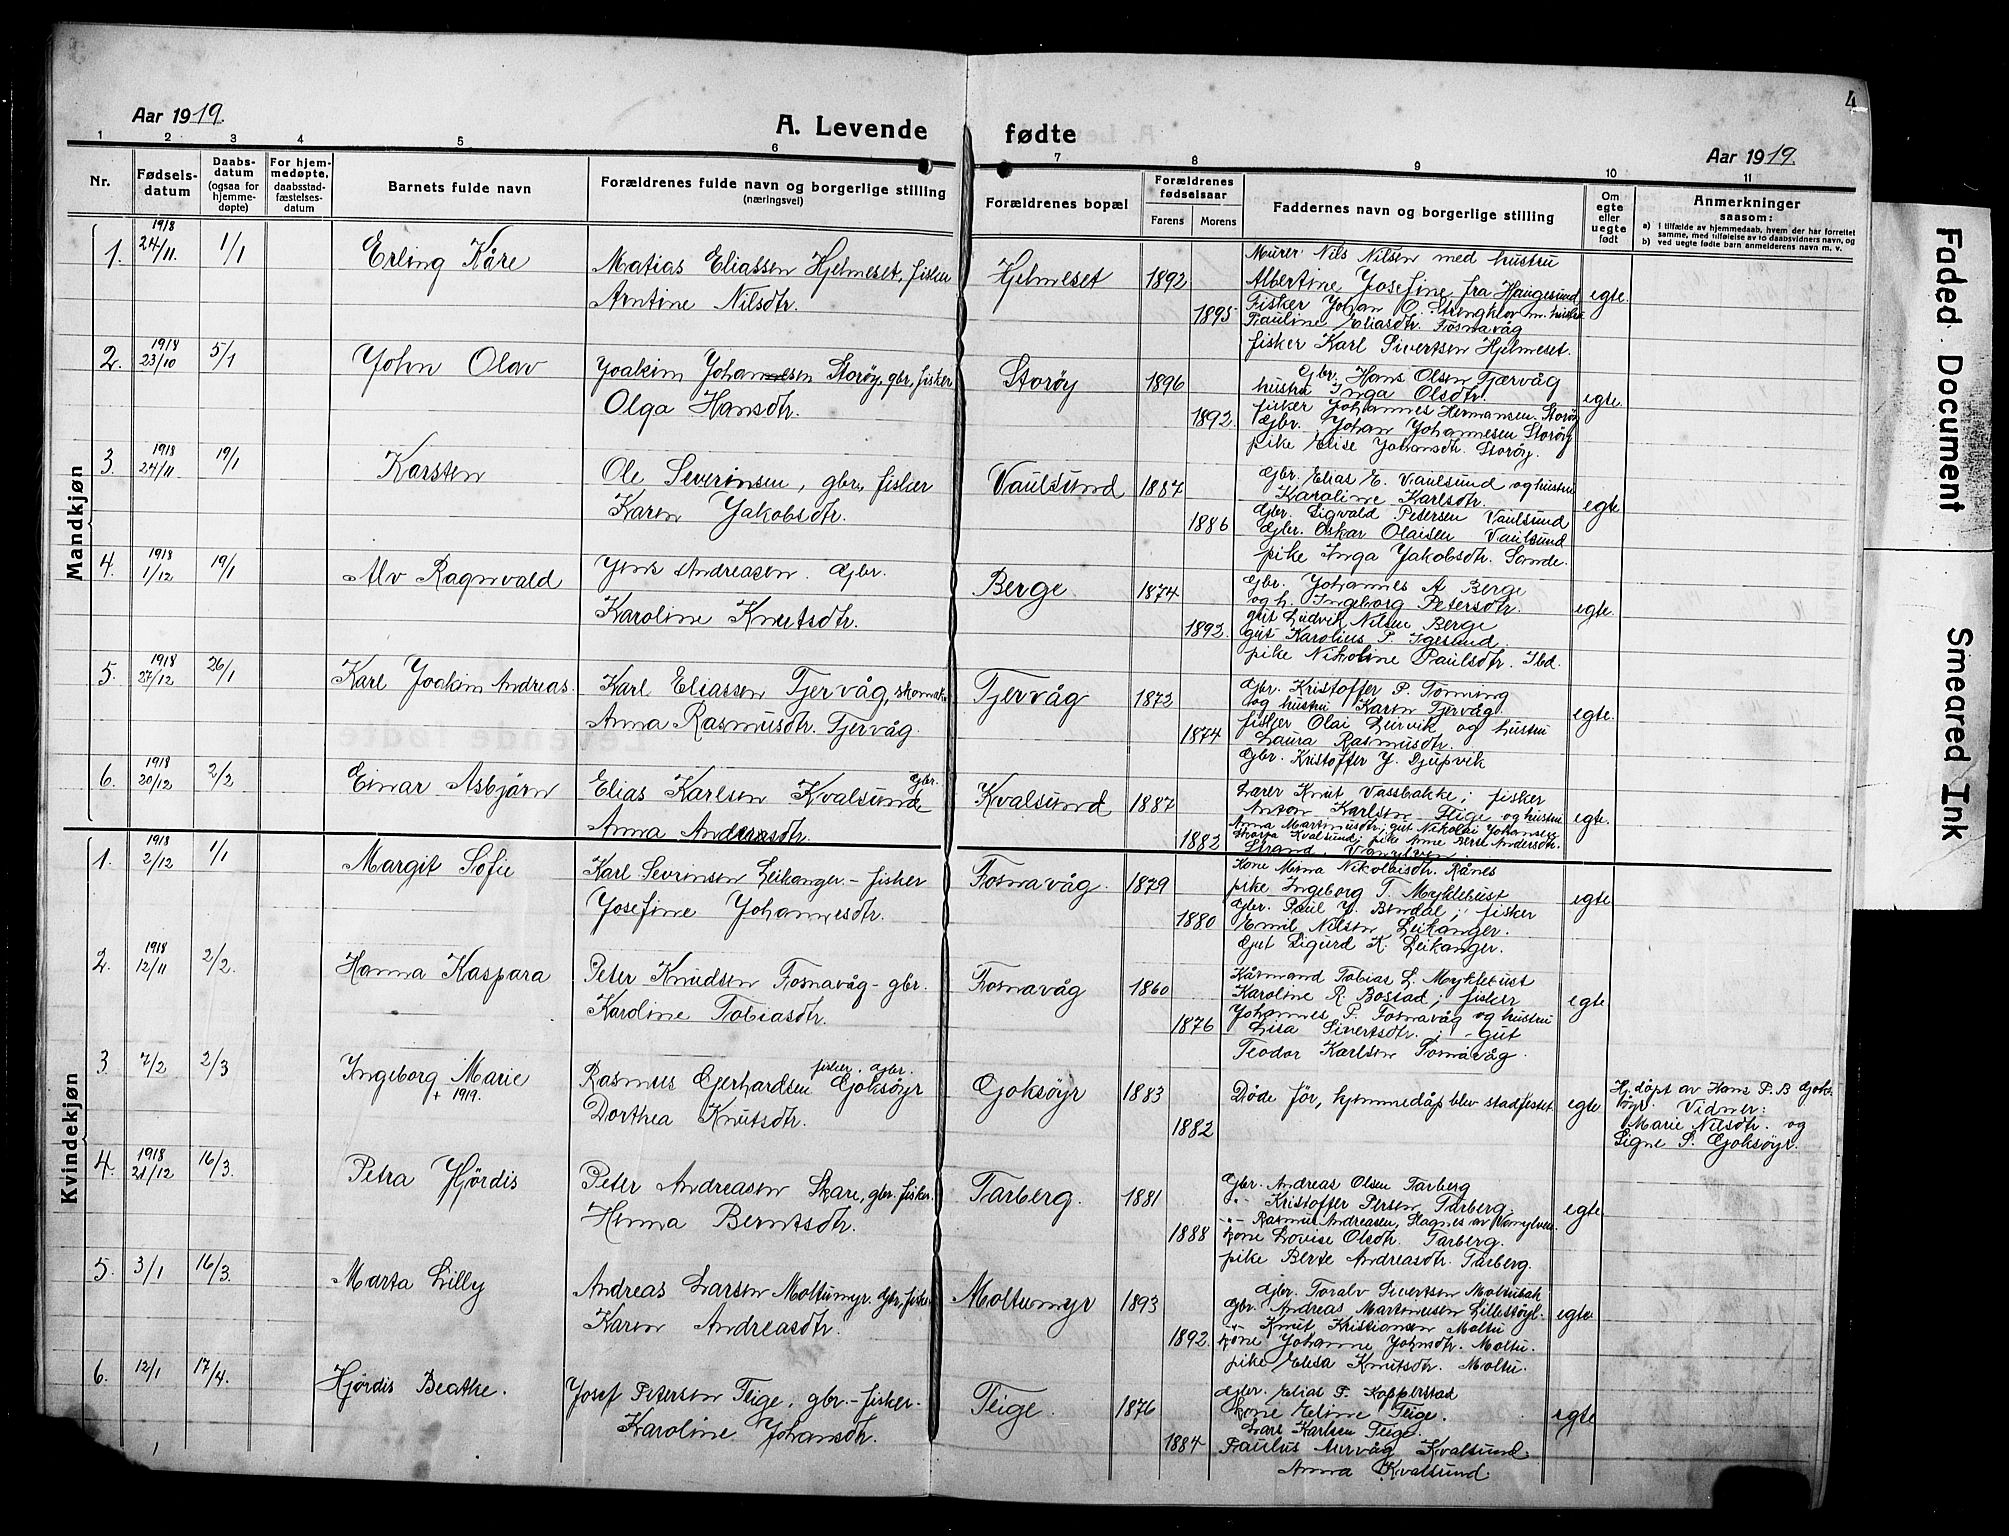 Aar 1919.
A. Levende fødte
Aar 1919.
4
1 2 3 4 5 6 7 8 9 10 11
Nr.
Fødsels-datum
Daabs-datum (ogsaa for hjemme-døpte)
For hjem-medøpte, daabsstad-fæstelses-datum
Barnets fulde navn
Forældrenes fulde navn og borgerlige stilling (næringsvei)
Forældrenes bopæl
Forældrenes fødselsaar
Farens Morens
Faddernes navn og borgerlige stilling
Om egte eller uegte født
Anmerkninger saasom:
a) I tilfælde av hjemmedaab, hvem der har forrettet samme, med tilføielse av to daabsvidners navn, og
b) ved uegte fødte barn anmelderens navn m. v.
Mandkjøn
1. 1918 24/11. 1/1 Erling Kåre
Matias Eliassen Hjelmeset, fisker
Arntine Nilsdtr.
Hjelmeset 1892 1895
Murer Nils Nilsen med hustru
Albertine Josefine fra Haugesund
Fisker Johan O. m. hustru
Pauline Eliasdtr. Fosnavåg
fisker Karl Sivertsen Hjelmeset.
egte.
2. 1918 23/10 5/1 John Olav
Joakim Johannesen Storøy, gbr, fisker
Olga Hansdtr.
Storøy 1896 1892.
Gbr. Hans Olsen Tjervåg
hustru Inga Olsdtr.
fisker Johannes Hermansen. Storøy
Gbr. Johan Johannesen Storøy
pike Elise Johansdtr. Storøy.
egte.
3. 1918 24/11 19/1 Karsten
Ole Severinsen, gbr, fisker
Karen Jakobsdtr.
Vaulsund 1887 1886
Gbr. Elias E. Vaulsund og hustru
Karoline Karlsdtr.
Gbr. Sigvald Petersen Vaulsund
Gbr. Oskar Olaisen Vaulsund
pike Inga Jakobsdtr. Sande.
egte
4. 1918 1/12 19/1 Alv Ragnvald
Jens Andreasen. Gbr.
Karoline Knutsdtr.
Berge 1874 1892.
Gbr. Johannes A Berge
og h. Ingeborg Petersdtr.
gut Ludvik Nilsen Berge
gut Karolius P. Igesund.
pike Nikoline Paulsdtr. Ibd.
egte.
5. 1918 27/12 26/1 Karl Joakim Andreas.
Karl Eliassen Tjervåg, skomak.
Anna Rasmusdtr. Tjervåg.
Tjervåg 1872 1874
Gbr. Kristoffer P. Tonning
og hustru Karen Tjervåg.
fisker Olai Leirvik og hustru
Laura Rasmusdtr.
Gbr. Kristoffer J. Djupvik
egte.
6. 1918 20/12 2/2 Einar Asbjørn
Elias Karlsen Kvalsund Gbr.
Anna Andersdtr.
Kvalsund 1887 1882
Lærer Knut Vassbakke; fisker
Anton Karlsen Teige og hustru
Anna Martinusdtr; gut Nikolai Johansen
Kvalsund; pike Anne Andersdtr.
Strand. Vanylven.
egte.
Kvindekjøn
1. 1918 2/12 1/1 Margit Sofie
Karl Sevrensen Leikanger - fisker
Josefine Johannesdtr.
Fosnavåg. 1879 1880
Kone Mina Nikolaisdtr. Rånes
pike Ingeborg T. Myklebust
Gbr. Paul J. Bondal; fisker
Emil Nilsen Leikanger.
Gut Sigurd K. Leikanger.
egte
2. 1918 12/11 2/2. Hanna Kaspara
Peter Knudsen Fosnavåg - gbr.
Karoline Tobiasdtr.
Fosnavåg 1860 1876
Kårmand Tobias L. Myklebust
Karoline R. Bostad; fisker
Johannes P. Fosnavåg og hustru
Lisa Sivertsdtr.; - gut
Teodor Karlsen Fosnavåg.
egte
3 7/2 2/3 Ingeborg Marie
+ 1919.
Rasmus Gerhardsen Goksøyr fisker. Gbr.
Dorthea Knutsdtr.
Goksøyr 1883 1882
Døde før, hjemmedåp blev stadfestet
egte
Hj.døpt av Hans P.B Goksøyr. Vidner:
Marie Nilsdtr. og
Signe S. Goksøyr.
4. 1918 21/12 16/3. Petra Hjørdis
Peter Andreasen Skare, gbr, fisker.
Hanna Berntsdtr.
Tarberg. 1881 1888
Gbr. Andreas Olsen Tarberg
-"- Kristoffer Persen Tarberg.
-"- Rasmus Andreasen, av Vanylven.
kone Lovise Olsdtr. Tarberg.
pike Berte Andreasdtr. Tarberg.
egte
5. 3/1 16/3. Marta Lilly
Andreas Larsen Moltumyr. Gbr, fisker
Karen Andreasdtr.
Moltumyr 1893 1892.
Gbr. Toralv Sivertsen Moltubak
Gbr. Andreas Martinusen Lillestøyl.
-"- Knut Kristiansen Moltu
kone Johanne Johnsdtr. Moltu.
pike Elisa Knutsdtr. Moltu.
egte
6. 12/1 17/4. Hjørdis Beathe.
Josef Petersen Teige. gbr. - fisker.
Karoline Johansdtr.
Teige. 1876 1884
Gbr. Elias P. Kopperstad
kone Eline Teige.
Lars Karlsen Teige.
Paulus Aurvåg Kvalsund
Anna Kvalsund.
egte
Faded Document
Smeared Ink